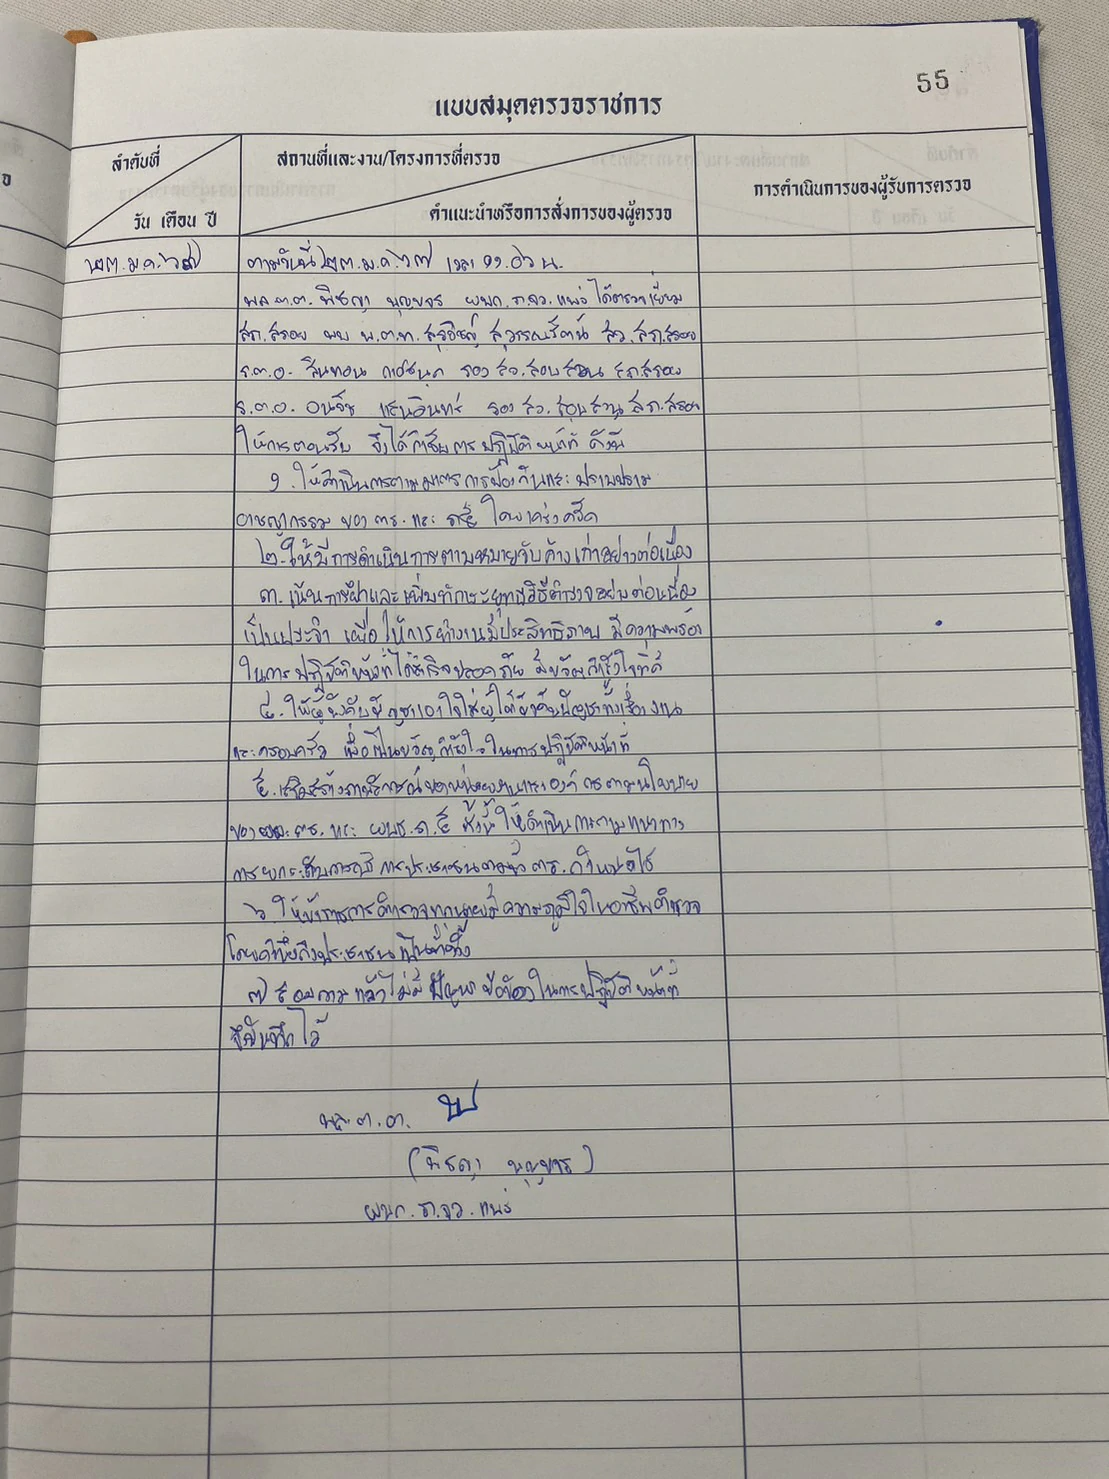 55
แบบสมุดตรวจราชการ
ลำดับที่
วัน เดือน ปี
สถานที่และงาน/โครงการที่ตรวจ
คำแนะนำหรือการสั่งการของผู้ตรวจ
การดำเนินการของผู้รับการตรวจ
๒๓.ม.ค.๖๗
ตามวันที่ ๒๓.ม.ค.๖๗ เวลา น.
พล.ต.ต. บุญขจร ผบก.ภ.จว.แพร่ ได้ตรวจเยี่ยม
สภ.สรอย พบ พ.ต.ท. สุวรรณรัตน์ สว.สภ.สรอย
ร.ต.อ. สินทอน รอง สว.สอบสวน สภ.สรอย
ร.ต.อ. อนุรัช แสนอินทร์ รอง สว.สอบสวน สภ.สรอย
ให้การตอนรับ จึงได้กำชับการปฏิบัติหน้าที่ ดังนี้
๑. ให้ดำเนินการตามมาตรการป้องกันและปราบปราม
อาชญากรรม ของ ตร. และ ภ.๕ โดยเคร่งครัด
๒. ให้มีการดำเนินการตามหมายจับค้างเก่าอย่างต่อเนื่อง
๓. เน้นการฝึกและเพิ่มทักษะยุทธวิธีตำรวจอย่างต่อเนื่อง
เป็นประจำ เพื่อให้การทำงานมีประสิทธิภาพ มีความพร้อม
ในการปฏิบัติหน้าที่ได้ ปลอดภัย มีขวัญกำลังใจที่ดี
๔. ให้ผู้บังคับบัญชาเอาใจใส่ผู้ใต้บังคับบัญชาทั้งเรื่องงาน
และครอบครัว เพื่อเป็นขวัญกำลังใจในการปฏิบัติหน้าที่
๕. เสริมสร้างภาพลักษณ์ของหน่วยงานและองค์กรตามนโยบาย
ของ ตร. และ ผบช.ภ.๕ ทั้งนี้ ให้ดำเนินการตามแนวทาง
การยกระดับการบริการประชาชน ตร. กำหนดไว้
๖ ให้ข้าราชการตำรวจทุกนายมีความภูมิใจในอาชีพตำรวจ
โดยคำนึงถึงประชาชนเป็นที่ตั้ง
๗ สอบถามแล้วไม่มีปัญหาข้อขัดข้องในการปฏิบัติหน้าที่
จึงบันทึกไว้
พล.ต.ต.
( บุญขจร )
ผบก.ภ.จว.แพร่